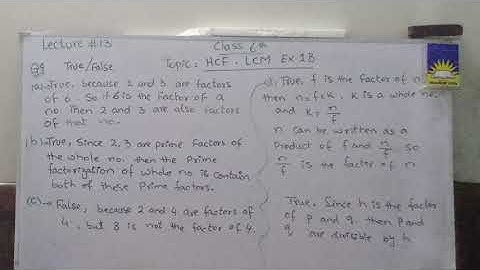 Lecture #13
Class 6th
Topic: HCF, LCM EX 1B
Q9 True/False
(a) True, because 2 and 3 are factors
of 6. So if 6 is the factor of a
no. Then 2 and 3 are also factors
of that no.
(b) → True, Since 2, 3 are prime factors of
the whole no. then the prime
factorization of whole no is contain
both of these prime factors.
(C) → False, because 2 and 4 are factors of
4, but 8 is not the factor of 4.
True, f is the factor of n
then n = f×k, k is a whole no.
and k = n/f
n can be written as a
product of f and n/f so
n/f is the factor of n
True, Since h is the factor
of p and q. then p and
q are divisible by h